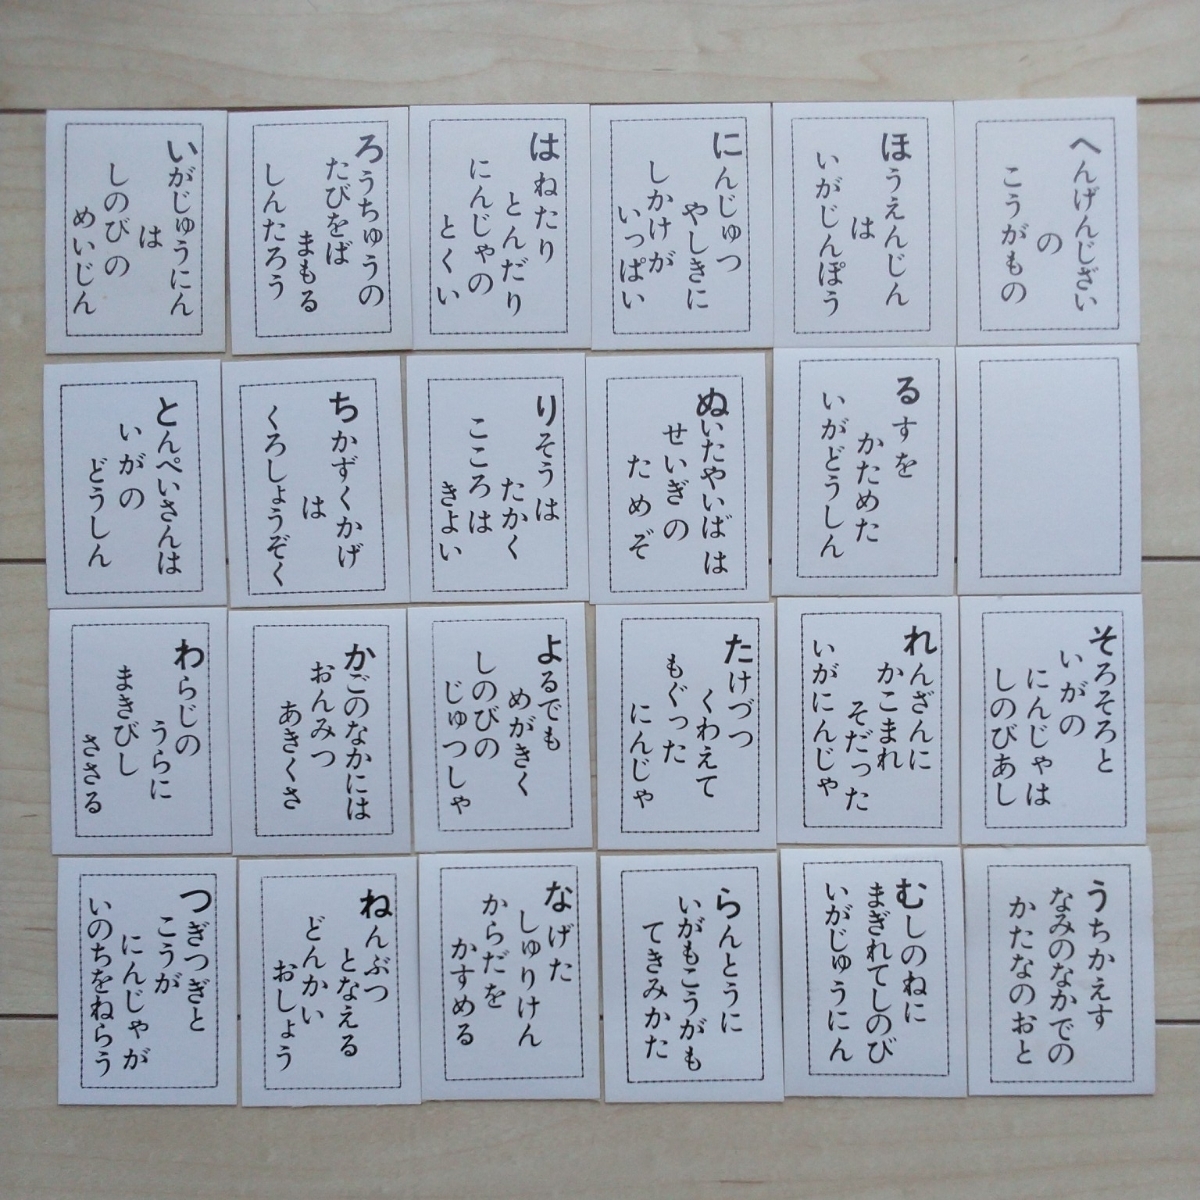 いがじゅうにん
は
しのびの
めいじん
ろうちゅうの
たびをば
まもる
しんたろう
はねたり
とんだり
にんじゃの
とくい
にんじゅつ
やしきに
しかけが
いっぱい
ほうえんじん
は
いがじんぽう
へんげんじざい
の
こうがもの
とんぺいさんは
いがの
どうしん
ちかずくかげ
は
くろしょうぞく
りそうは
たかく
こころは
きよい
ぬいたやいばは
せいぎの
ためぞ
るすを
かためた
いがどうしん
わらじの
うらに
まきびし
ささる
かごのなかには
おんみつ
あきくさ
よるでも
めがきく
しのびの
じゅつしゃ
たけづつ
くわえて
もぐった
にんじゃ
れんざんに
かこまれ
そだった
いがにんじゃ
そろそろと
いがの
にんじゃは
しのびあし
つぎつぎと
こうが
にんじゃが
いのちをねらう
ねんぶつ
となえる
どんかい
おしょう
なげた
しゅりけん
からだを
かすめる
らんとうに
いがもこうがも
てきみかた
むしのねに
まぎれてしのび
いがじゅうにん
うちかえす
なみのなかでの
かたなのおと